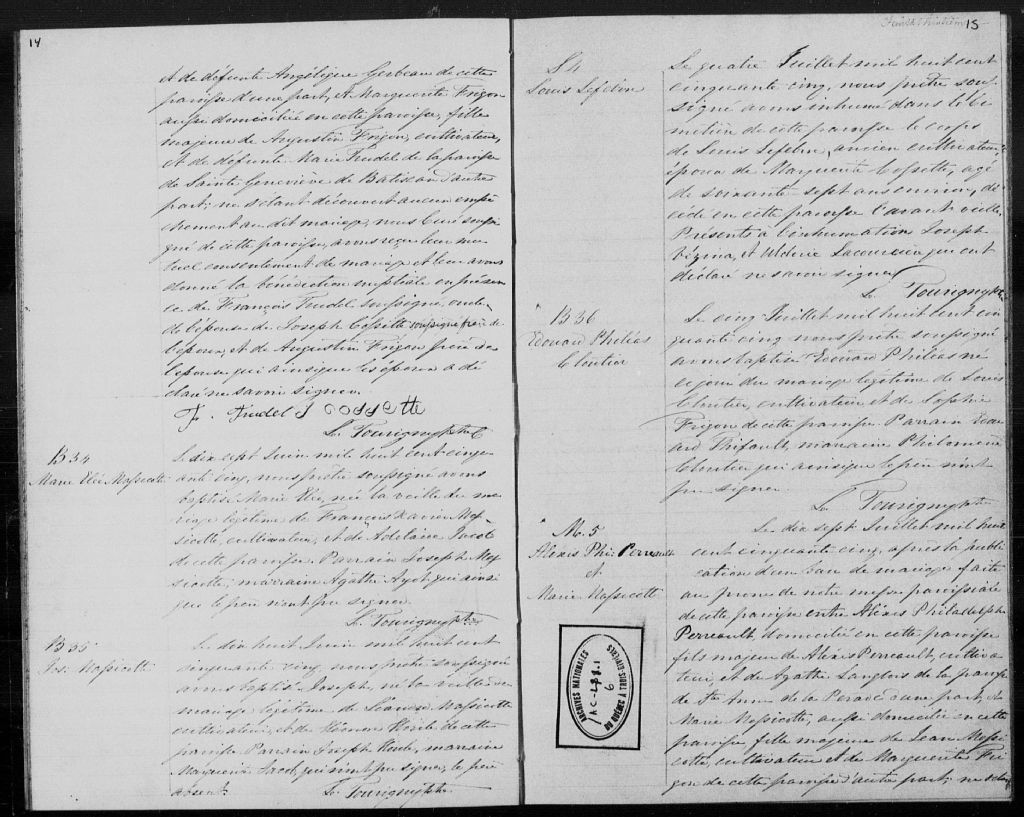 14
et de défunte Angélique Gerbeau de cette
paroisse d'une part, et Marguerite Frigon
aussi domiciliée en cette paroisse, fille
majeure de Augustin Frigon, cultivateur,
et de défunte Marie Trudel de la paroisse
de Sainte Geneviève de Batiscan d'autre
part; ne s'étant découvert aucun empê
chement au dit mariage, nous Curé soussi
gné de cette paroisse, avons reçu leur mu
tuel consentement de mariage et leur avons
donné la bénédiction nuptiale en présen
ce de François Trudel soussigné, oncle
de l'épouse de Joseph Cossette soussigné frère de
l'époux, et de Augustin Frigon frère de
l'épouse qui ainsi que les époux a dé
claré ne savoir signer.
F. Trudel J Cossette
L. Tourigny Ptre C
B 34
Marie Elée Massicotte
Le dix sept Juin mil huit cent cinqu
ante cinq, nous prêtre soussigné avons
baptisé Marie Elée, née la veille du ma
riage légitime de François Xavier Mas
sicotte, cultivateur, et de Adélaide Jacob
de cette paroisse. Parrain Joseph Mas
sicotte; marraine Agathe Ayot qui ainsi
que le père n'ont pu signer.
L. Tourigny Ptre
B 35
Jos. Massicotte
Le dix huit Juin mil huit cent
cinquante cinq, nous prêtre soussigné
avons baptisé Joseph, né la veille du
mariage légitime de Massicotte
cultivateur, et de Léonore de cette
paroisse Parrain Joseph marraine
Marguerite Jacob, qui n'ont pu signer, le père
absent.
L. Tourigny Ptre
15
S 4
Louis Lefebvre
Le quatre Juillet mil huit cent
cinquante cinq, nous prêtre sous
signé avons inhumé dans le ci
metière de cette paroisse le corps
de Louis Lefebvre, ancien cultivateur,
époux de Marguerite Cossette, agé
de soixante sept ans environ, dé
cédé en cette paroisse l'avant veille,
Présents à l'inhumation Joseph
et Uldoric Lacoursière qui ont
déclaré ne savoir signer
L. Tourigny Ptre
B 36
Edouard Philéas
Cloutier
Le cinq Juillet mil huit cent cin
quante cinq nous prêtre soussigné
avons baptisé Edouard Philéas né
ce jour du mariage légitime de Louis
Cloutier, cultivateur et de Sophie
Frigon de cette paroisse. Parrain Edou
ard Thifault, marraine Philomène
Cloutier qui ainsi que le père n'ont
pu signer.
L. Tourigny Ptre
M. 5
Alexis Phi: Perreault
et
Marie Massicotte
Le dix sept Juillet mil huit
cent cinquante cinq, après la publi
cation d'un ban de mariage faite
au prone de notre messe paroissiale
de cette paroisse entre Alexis Philadelphe
Perreault, domicilié en cette paroisse
fils majeur de Alexis Perreault, cultiva
teur, et de Agathe Langlois de la paroisse
de Ste Anne de la Pérade d'une part, et
Marie Massicotte, aussi domiciliée en cette
paroisse fille majeure de Jean Massi
cotte, cultivateur et de Marguerite Fri
gon de cette paroisse d'autre part; ne s'étant
ARCHIVES NATIONALES
DU QUÉBEC À TROIS-RIVIÈRES
6